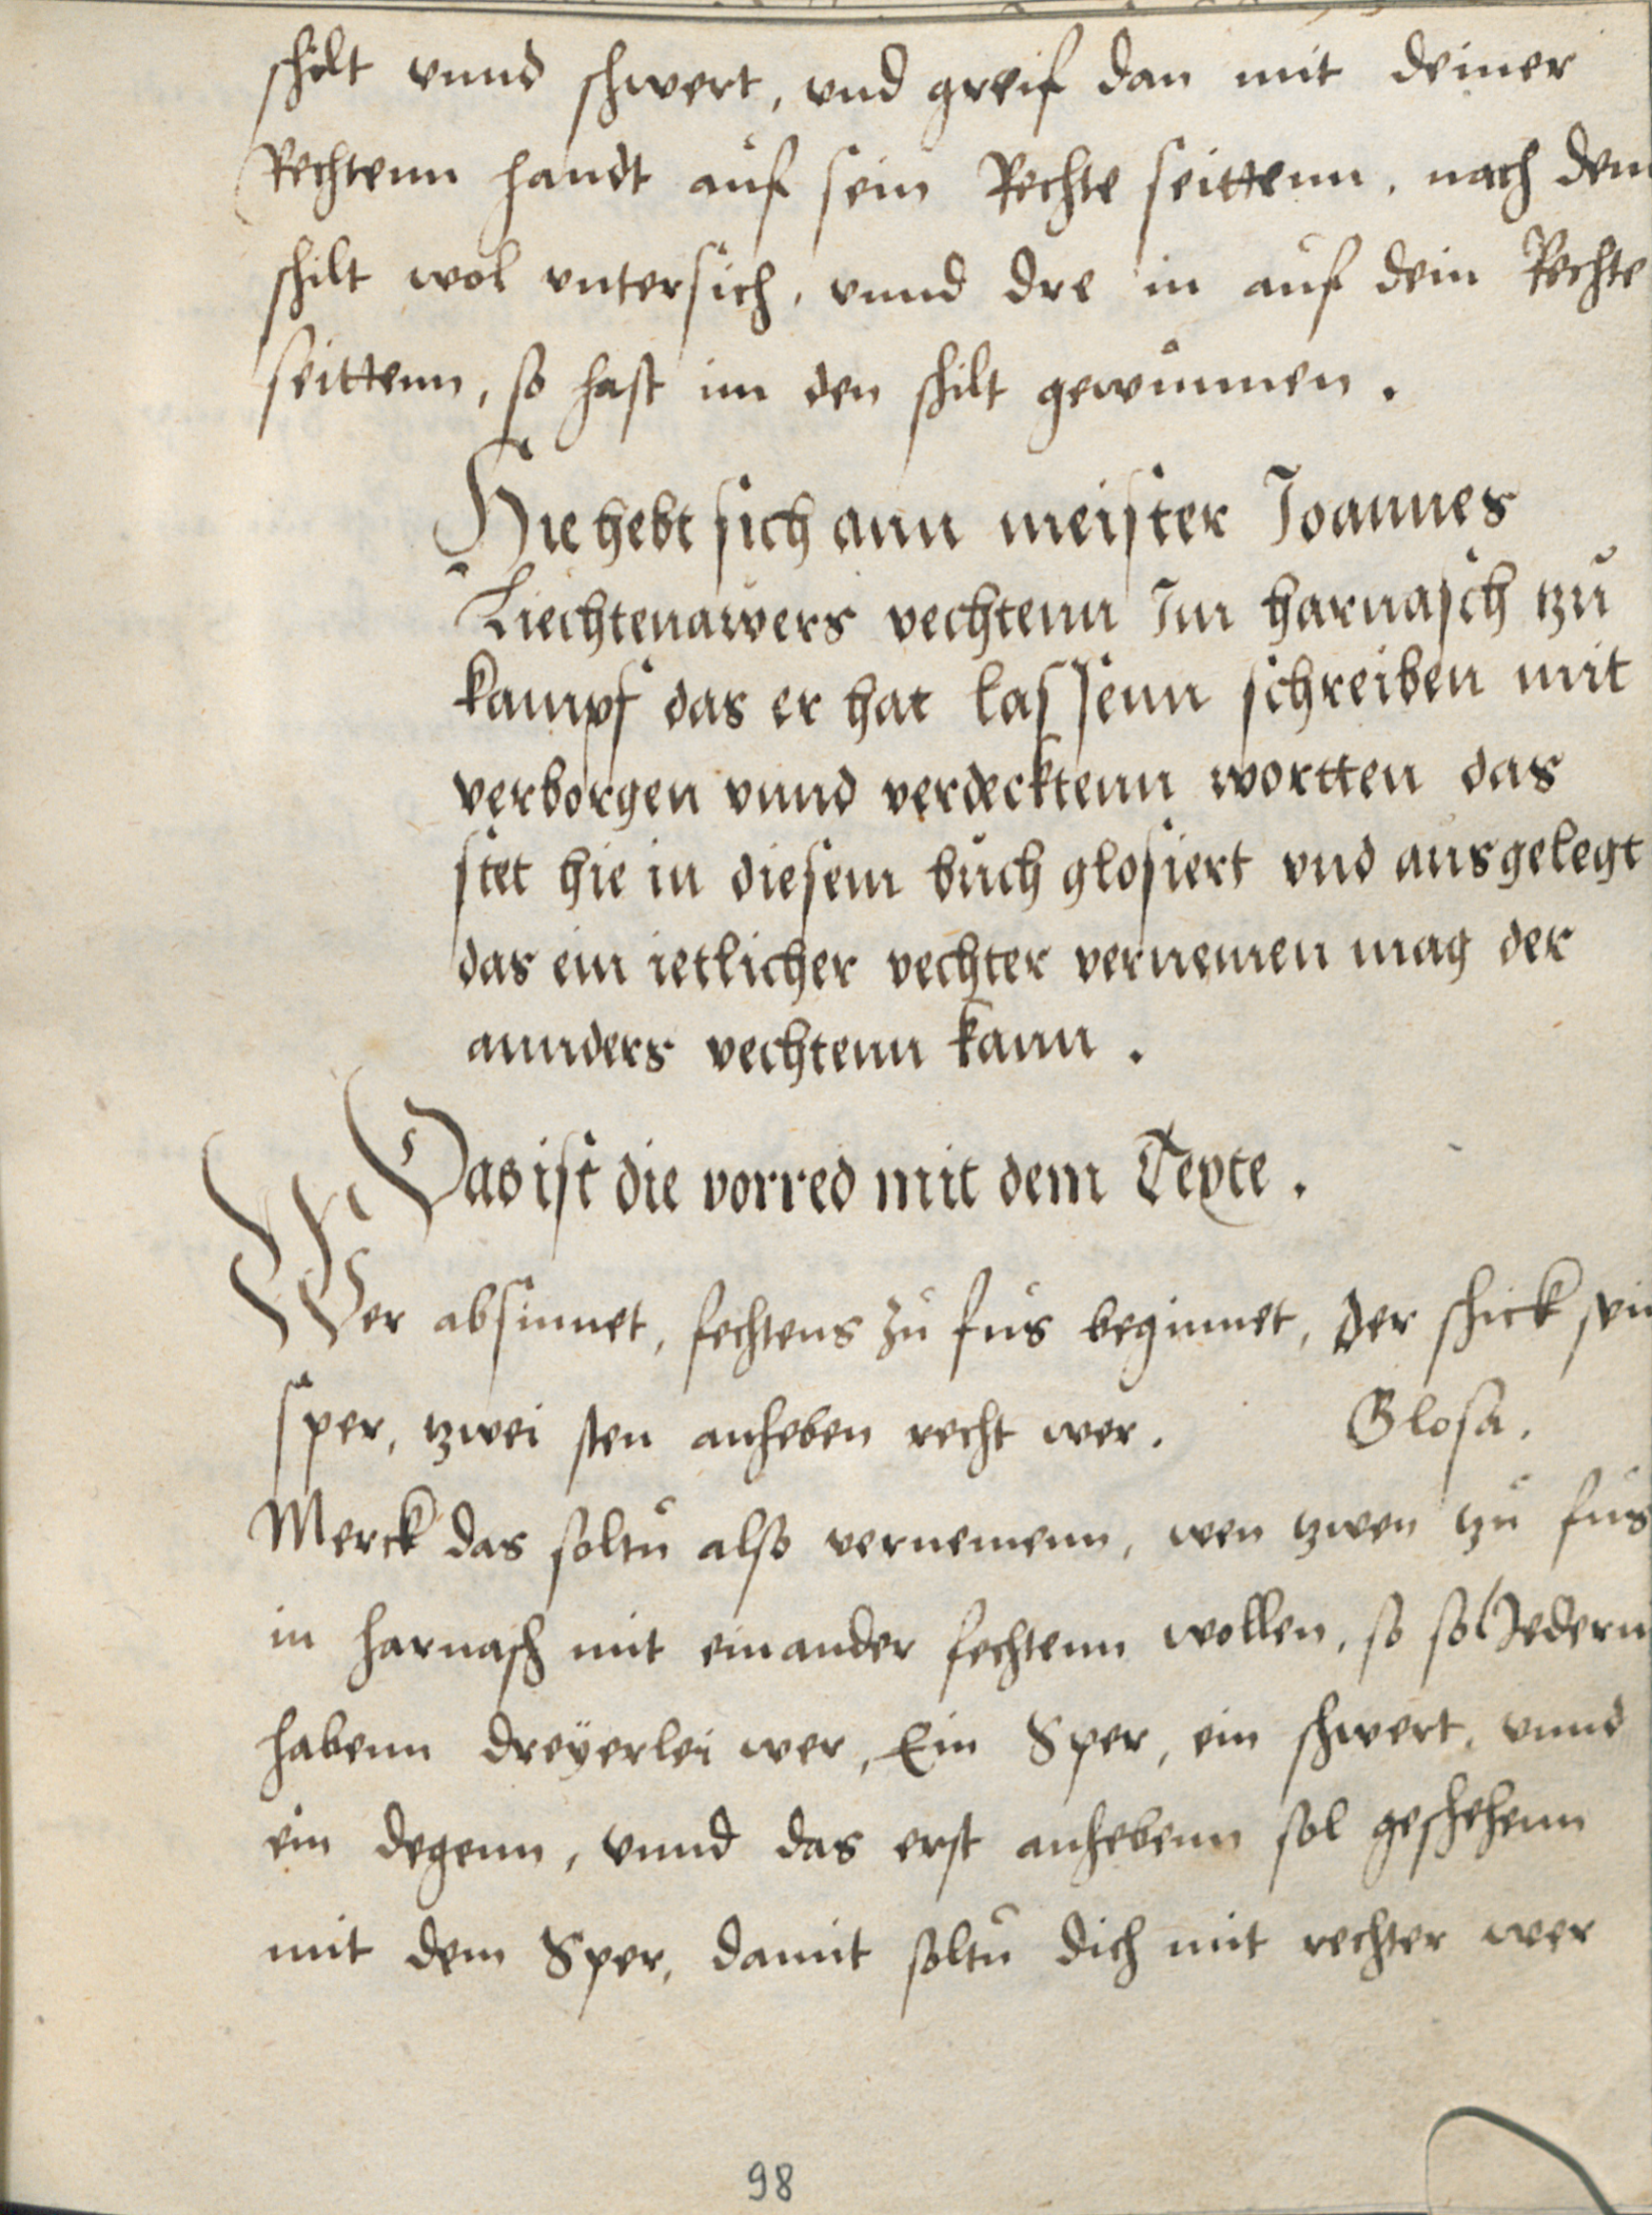 schilt vnnd schwert, vnd greif dan mit deiner
Rechtenn handt auf sein Rechte seittenn, nach dem
schilt wol vntersich, vnnd dre in auf dein Rechte
seittenn, so hast im den schilt gewunnen.
Hie hebt sich ann meister Joannes
Liechtenawers vechtenn Im harnasch tzu
kampf das er hat lassenn schreiben mit
verborgen vnnd verdecktenn wortten das
stet hie in diesem buch glosiert vnd ausgelegt
das ein ietlicher vechter vernemen mag der
annders vechtenn kann.
Das ist die vorred mit dem Texte.
Wer absinnet, fechtens zu fus beginnet, der schick sein
sper, tzwei sten anheben recht wer. Glosa.
Merck das soltu also vernemenn, wen tzwen tzu fus
in harnasch mit einander fechtenn wollen, so sol Jederm
habenn dreyerlei wer, Ein Sper, ein schwert, vnnd
ein degenn, vnnd das erst anhebenn sol geschehenn
mit dem Sper, damit soltu dich mit rechter wer
98